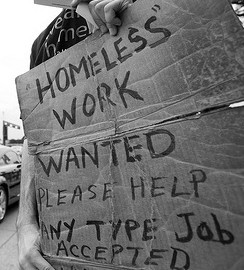 "HOMELESS"
WORK
WANTED
PLEASE HELP
ANY TYPE Job
ACCEPTED